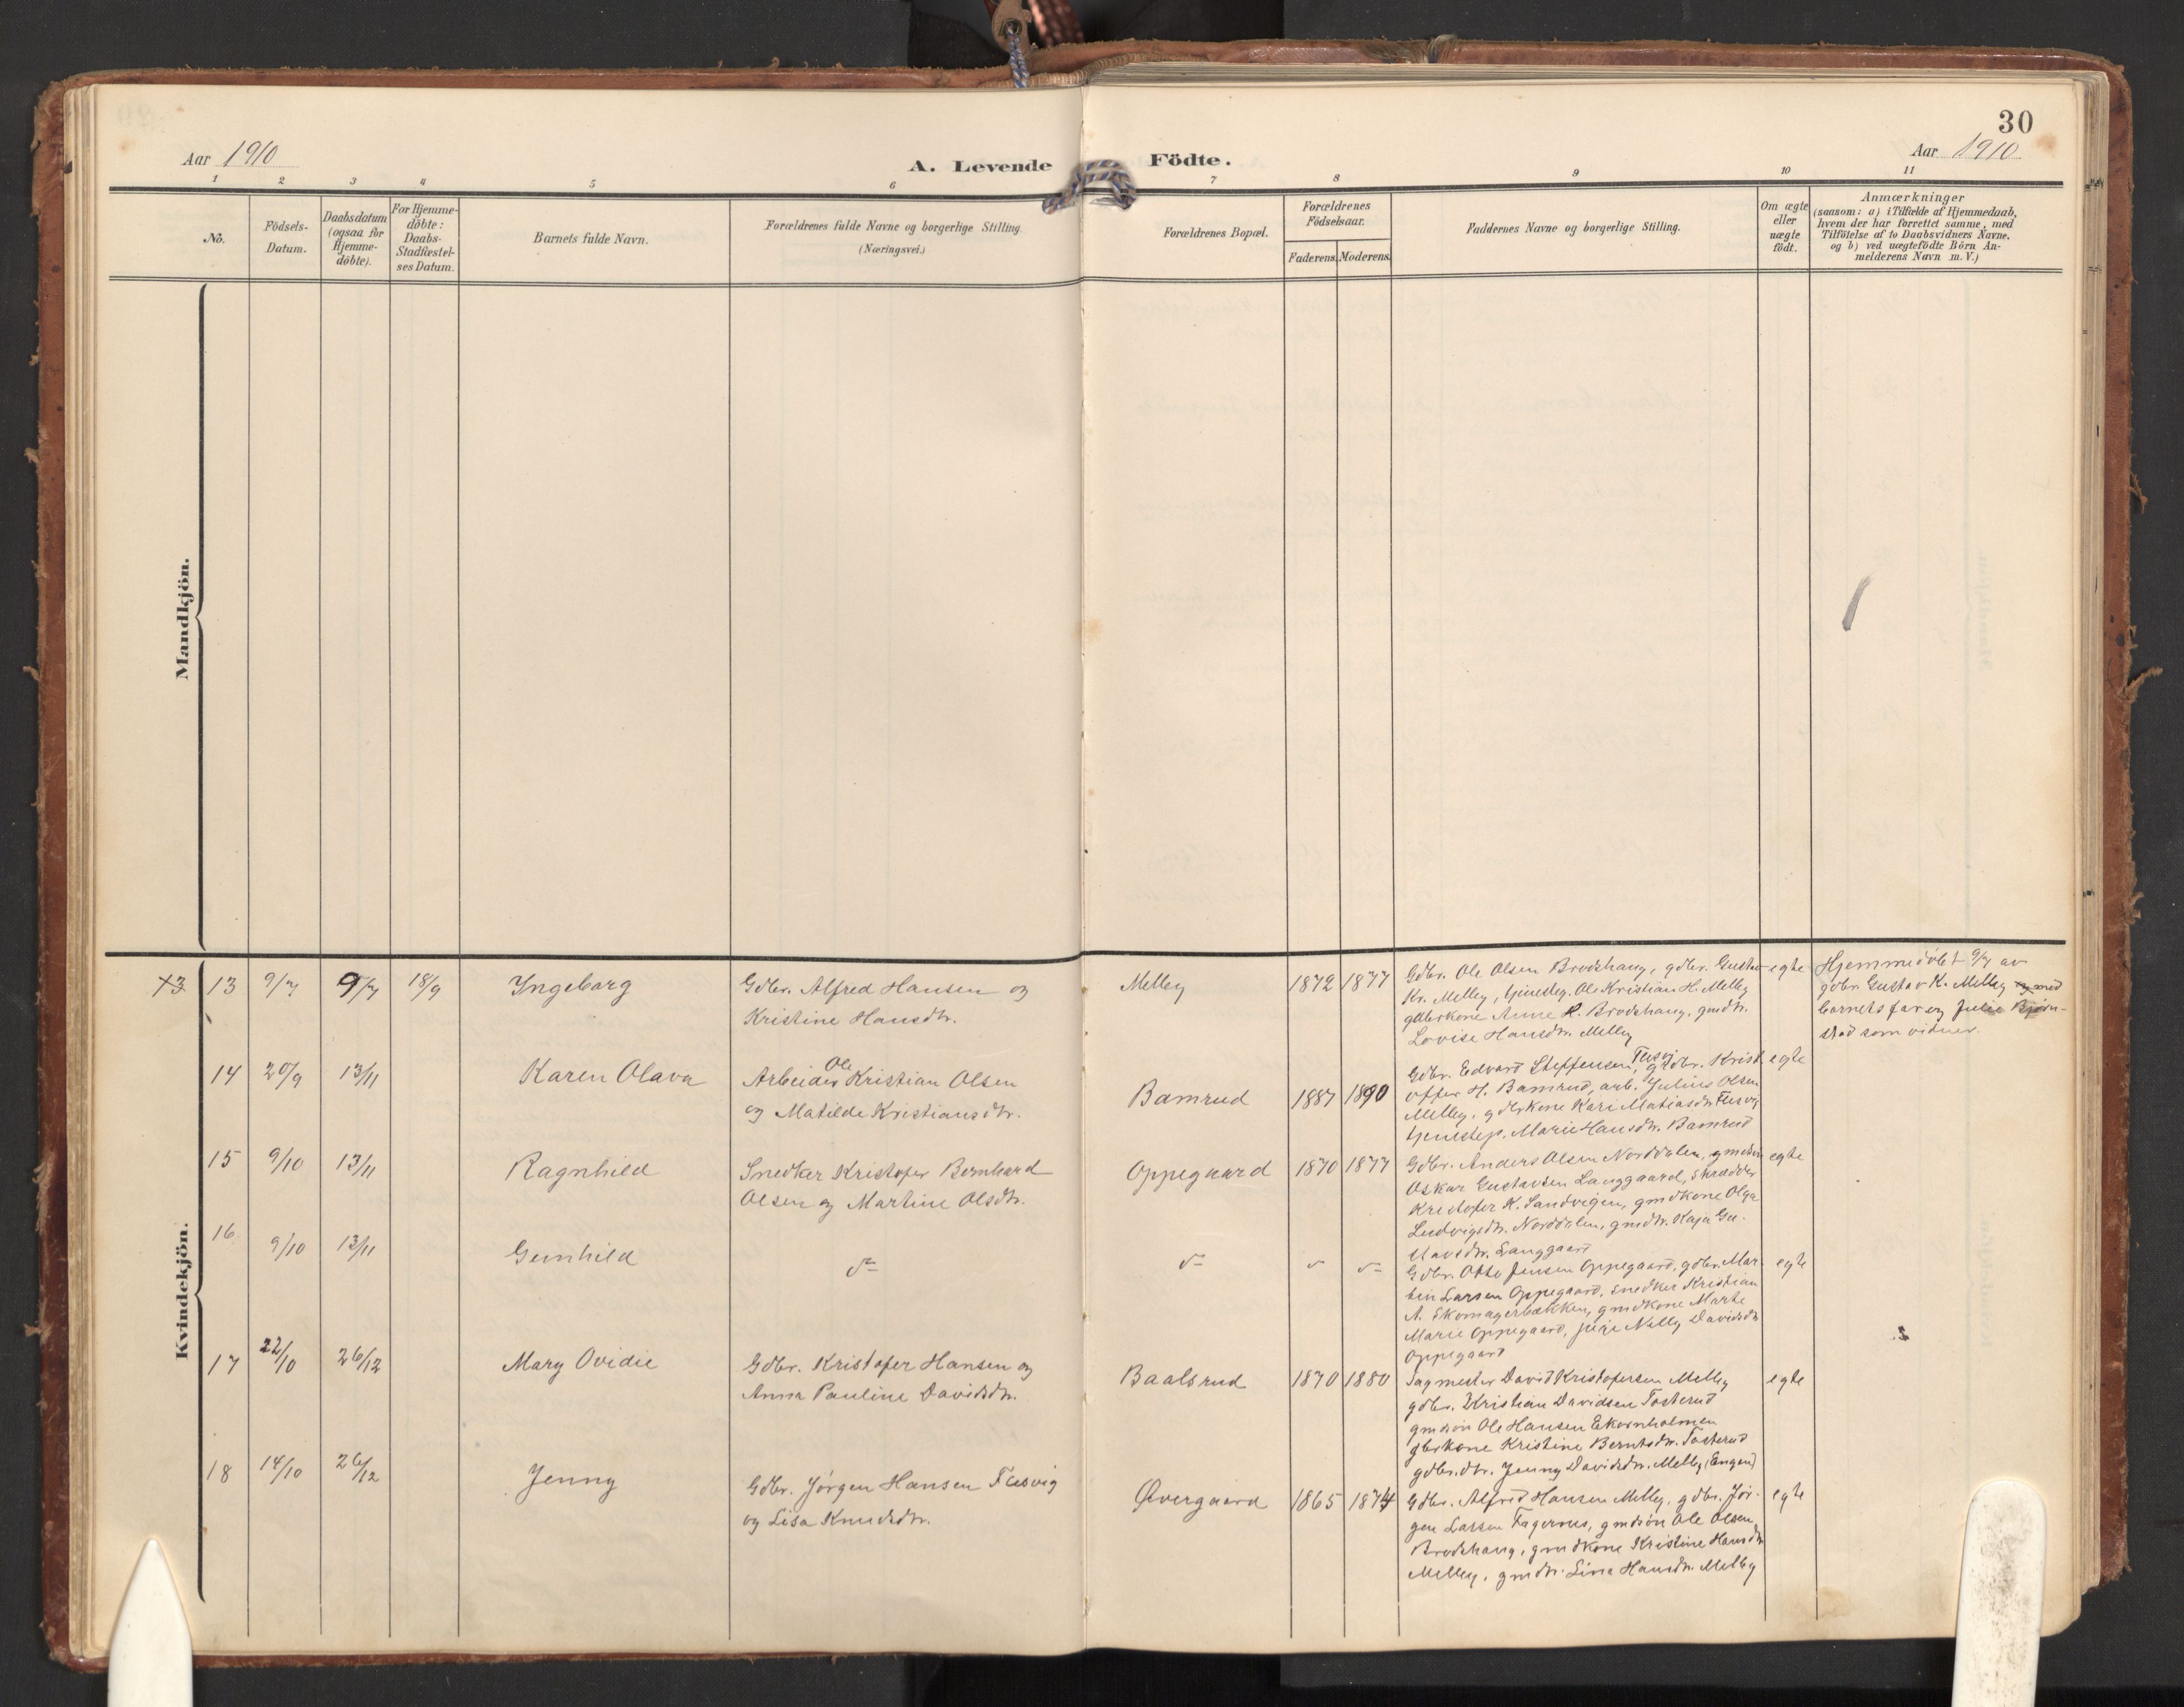 30
Aar 1910
A. Levende Födte.
Aar 1910
1 2 3 4 5 6 7 8 9 10 11
No.
Födsels-
Datum.
Daabsdatum
(ogsaa for
Hjemme-
döbte).
For Hjemme-
döbte:
Daabs-
Stadfæstel-
ses Datum.
Barnets fulde Navn.
Forældrenes fulde Navne og borgerlige Stilling.
(Næringsvei.)
Forældrenes Bopæl.
Forældrenes
Födselsaar.
Faderens. Moderens.
Faddernes Navne og borgerlige Stilling.
Om ægte
eller
uægte
födt.
Anmærkninger
(saasom: a) i Tilfælde af Hjemmedaab,
hvem der har forrettet samme, med
Tilföielse af to Daabsvidners Navne.
og b) ved uægtefödte Börn An-
melderens Navn m. V.)
Mandkjön.
Kvindekjön.
13 9/7 9/7 18/9 Ingeborg
Gdbr. Alfred Hansen og
Kristine Hansdtr.
Melby 1872 1877
Gdbr. Ole Olsen Brodshaug, gdbr. Gustav
Kr. Melby, tjenesteg. Ole Kristian H. Melby
gdbrkone Anne H. Brodshaug, gmdtr.
Lovise Hansdtr. Melby
egte
Hjemmedöbt 9/7 av
gdbr. Gustav K. Melby og med
barnets far og Julie Bjørn-
stad som vidner.
14 20/9 13/11 Karen Olava
Arbeider Ole Kristian Olsen
og Matilde Kristiansdtr.
Bamrud 1887 1890
Gdbr. Edvard Steffensen Tusvig, gdbr. Krist
offer H. Bamrud, arb. Julius Olsen
Melby, gdbrkone Kari Matiasdtr. Tusvig
tjenestep. Marie Hansdtr. Bamrud
egte
15 9/10 13/11 Ragnhild
Snedker Kristofer Bernhard
Olsen og Martine Olsdtr.
Oppegaard 1870 1877
Gdbr. Anders Olsen Norddalen, gmdsøn
Oskar Gustavsen Langgaard, skrædder
Kristofer K. Sandvigen, gmdkone Olga
Ludvigsdtr. Norddalen, gmdtr. Kaja Gu-
stavsdtr. Langgaard
egte
16 9/10 13/11 Gunhild
Gdbr. Otto Jensen Oppegaard, gdbr. Mar-
tin Larsen Oppegaard, snedker Kristian
A. Skomagerbækken, gmdkone Marte
Marie Oppegaard, pige Nelly Davidsdtr.
Oppegaard
egte
17 22/10 26/12 Mary Ovidie
Gdbr. Kristofer Hansen og
Anna Pauline Davidsdtr.
Baalsrud 1870 1880
Sagmester David Kristofersen Melby
gdbr. Kristian Davidsen Tosterud
gmdsøn Ole Hansen Ekornholmen
gbrkone Kristine Berntsdtr. Tosterud
gdbr.dtr. Jenny Davidsdtr. Melby (Engen)
egte
18 14/10 26/12 Jenny
Gdbr. Jørgen Hansen Tusvig
og Lisa Knudsdtr.
Øvergaard 1865 1874
Gdbr. Alfred Hansen Melby, gdbr. Jør-
gen Larsen Fagernes, gmdsøn Ole Olsen
Brodshaug, gmdkone Kristine Hansdtr.
Melby, gmdtr. Lina Hansdtr. Melby
egte